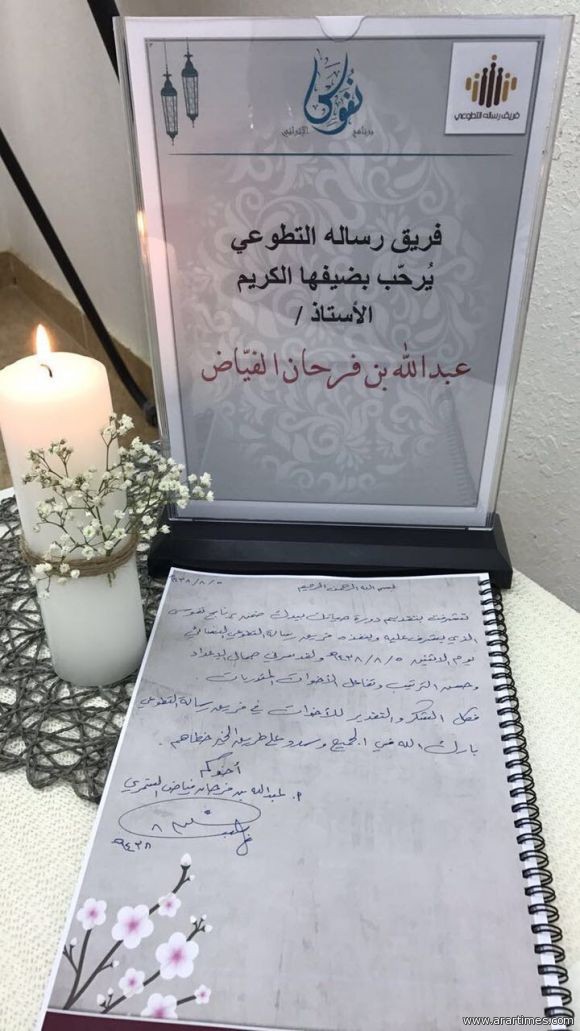 نفوس
برنامج الإثرائي
فريق رساله التطوعي
فريق رساله التطوعي
يُرحّب بضيفها الكريم
الأستاذ /
عبدالله بن فرحان الفيّاض
بسم الله الرحمن الرحيم
١٤٣٨/٨/٥
تشرفت بتقديم دورة حياتك بيدك ضمن برنامج نفوس
الذي يشرف عليه وينفذه فريق رسالة التطوعي النسائي
يوم الاثنين ١٤٣٨/٨/٥هـ ولقد سرني جمال الإعداد
وحسن الترتيب وتفاعل الأخوات المتدربات .
فكل الشكر والتقدير للأخوات في فريق رسالة التطوعي
بارك الله في الجميع وسدد على طريق الخير خطاهم .
أخوكم
أ. عبدالله بن فرحان فياض العنزي
١٤٣٨هـ
www.arartimes.com